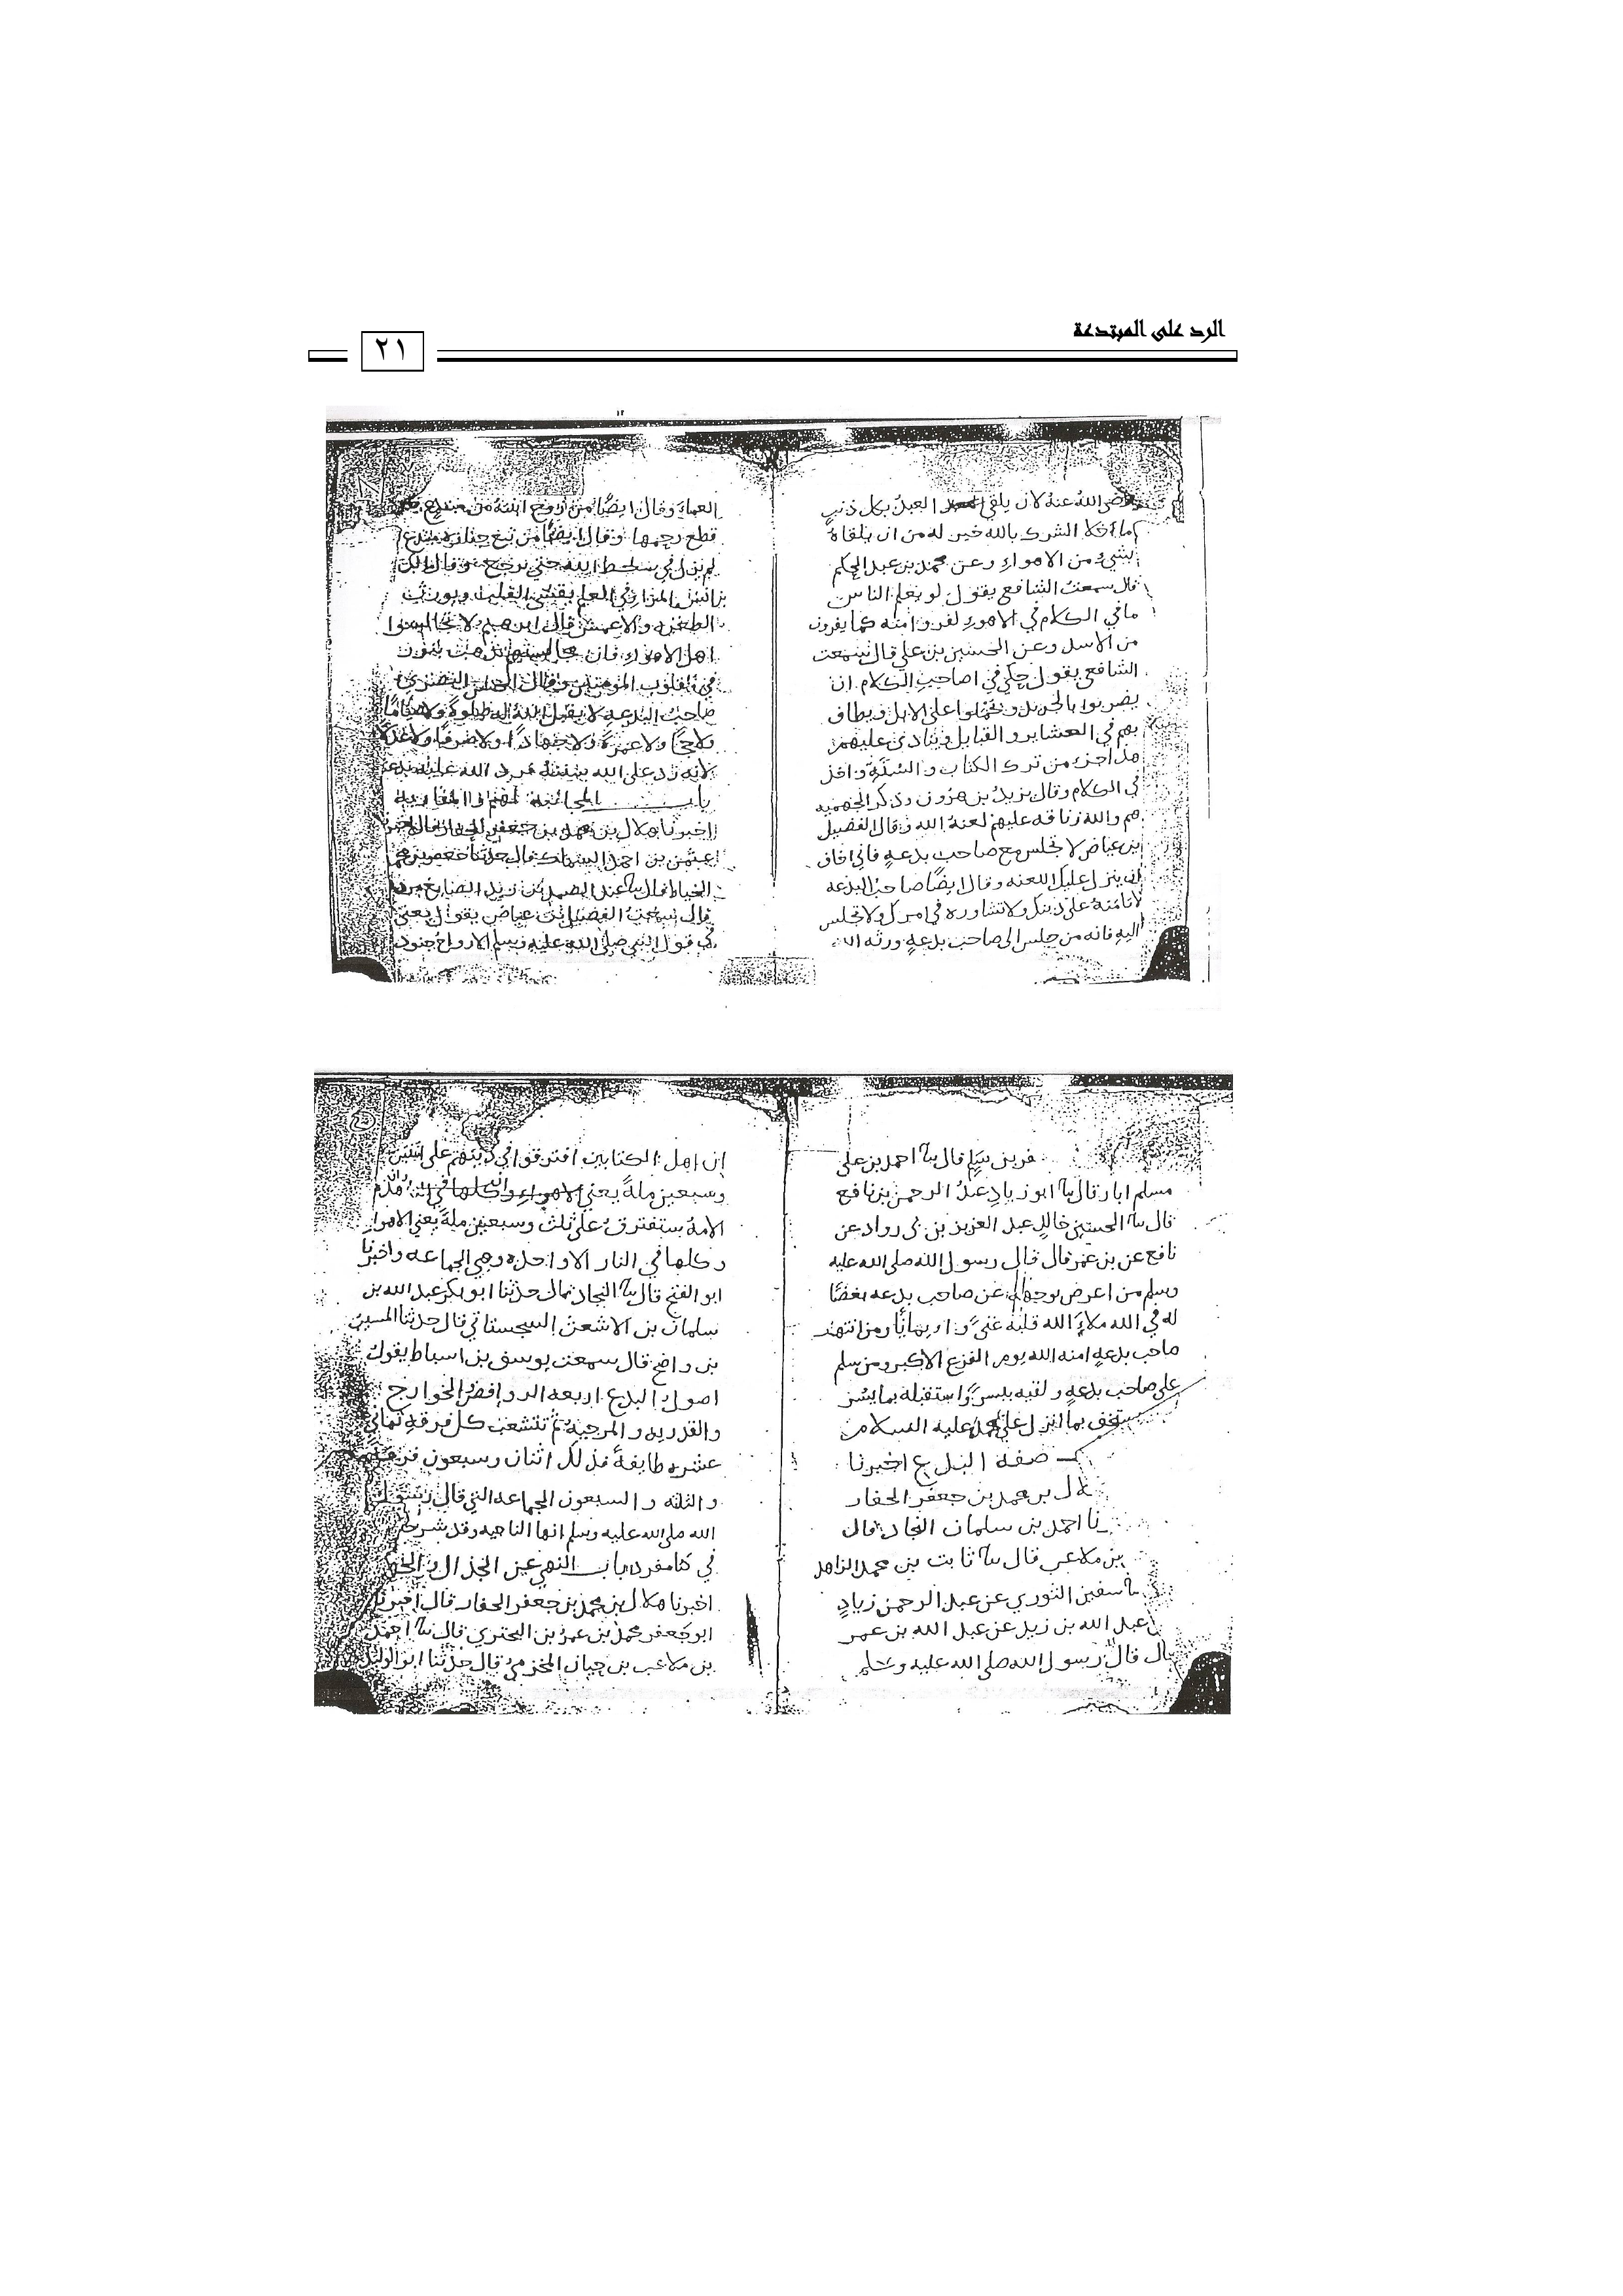 الرد على المبتدعة
٢١
الله عنه لان يلقى العبد بكل ذنب
ما خلا الشرك بالله خير له من ان يلقاه
بشيء من الاهواء وعن محمد بن عبد الحكم
قال سمعت الشافعي يقول لو يعلم الناس
ما في الكلام في الاهواء لفروا منه كما يفرون
من الاسد وعن الحسين بن علي قال سمعت
الشافعي يقول حكمي في اصاحب الكلام ان
يضربوا بالجريد ويحملوا على الابل ويطاف
بهم في العشاير والقبايل وينادى عليهم
هذا جزء من ترك الكتاب والسنة واخذ
في الكلام وقال يزيد بن هرون وذكر الجهميه
هم والله زنادقه عليهم لعنة الله وقال الفضيل
بن عياض لا تجلس مع صاحب بدعه فاني اخاف
ان ينزل عليك اللعنه وقال ايضا صاحب البدعه
لا تامنه على دينك ولا تشاوره في امرك ولا تجلس
اليه فانه من جلس الى صاحب بدعه ورثه الله
العماء وقال ايضا من زوج ابنته من مبتدع فقد
قطع رحمها وقال ايضا من تبع جنازه مبتدع
لم يزل في سخط الله حتى يرجع وقال مالك
بن انس المراء في العلم يقسي القلب ويورث
الضغن والاعمش قال ابرهيم لا تجالسوا
اهل الاهواء فان مجالستهم تذهب بنور
من قلوب المؤمنين وقال الحسن البصري
صاحب البدعه لا يقبل الله له صلوة ولا صياما
ولا حجا ولا عمرة ولا جهادا ولا صرفا ولا عدلا
لانه رد على الله سنته فرد الله عليه بدعته
باب المجانبة لهم والمقاربه
اخبرنا هلال بن محمد بن جعفر الحفار قال اخبرنا
عثمن بن احمد السماك قال حدثنا جعفر بن محمد
الخياط قال نا عبد الصمد بن زيد الصايغ مردويه
قال سمعت الفضيل بن عياض يقول يعني
في قول النبي صلى الله عليه وسلم الارواح جنود
قال نا احمد بن علي
مسلم ابار قال نا ابو زياد عبد الرحمن بن نافع
قال نا الحسين خالد عبد العزيز بن بي رواد عن
نافع عن بن عمر قال قال رسول الله صلى الله عليه
وسلم من اعرض بوجهه عن صاحب بدعه بغضا
له في الله ملاء الله قلبه غنى وايمانا ومن انتهر
صاحب بدعه امنه الله يوم الفزع الاكبر ومن سلم
على صاحب بدعه ولقيه بيسر واستقبله بما يسر
يستخف بما انزل على محمد عليه السلام
صفة البدع اخبرنا
هلال بن محمد بن جعفر الحفار
نا احمد بن سلمان النجاد قال
بن ملاعب قال نا ثابت بن محمد الزاهد
نا سفين الثوري عن عبد الرحمن زياد
عبد الله بن زيد عن عبد الله بن عمر
قال قال رسول الله صلى الله عليه وسلم
ان اهل الكتابين افترقوا في دينهم على اثنتين
وسبعين ملة يعني الاهواء كلها في هذه
الامة ستفترق على ثلث وسبعين ملة يعني الاهوا
وكلها في النار الا واحده وهي الجماعه واخبرنا
ابو الفتح قال نا النجاد قال حدثنا ابو بكر عبد الله بن
سلمان بن الاشعث السجستاني قال حدثنا المسيب
بن واضح قال سمعت يوسف بن اسباط يقول
اصول البدع اربعه الروافض الخوارج
والقدريه والمرجيه ثم تتشعب كل فرقه ثماني
عشره طايفة فذلك اثنان وسبعون فرقة
والثلثه والسبعون الجماعه التي قال رسول
الله صلى الله عليه وسلم انها الناجيه وقد شرحت
في كتا مفرد باب النهي عن الجدال
اخبرنا هلال بن محمد بن جعفر الحفار قال اخبرنا
ابو جعفر محمد بن عمرو بن البختري قال نا احمد
بن ملاعب بن حيان المخزمي قال حدثنا ابو الوليد